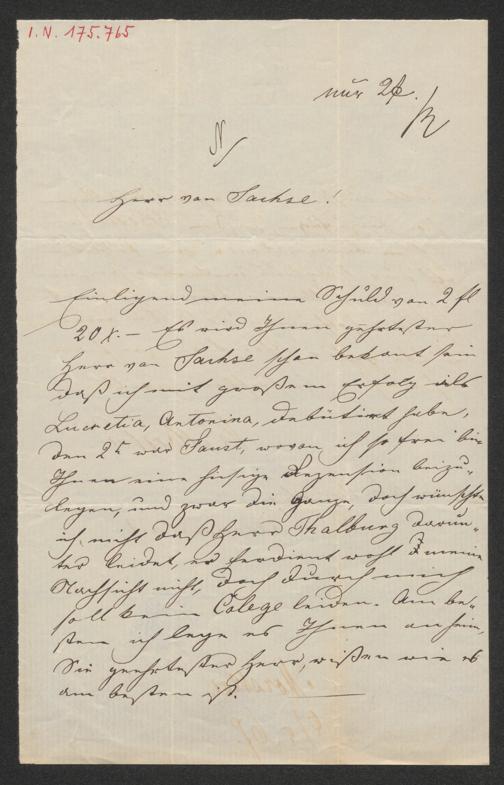 I.N. 175.765
nur 2
Herr von Sachse!
Einligend meine Schuld von 2 fl
20 x. – Es wird Ihnen geehrtester
Herr von Sachse schon bekant sein
daß ich mit großem Erfolg als
Lucretia, Antonina, debütirt habe,
den 25 war Faust, wovon ich so frei bin
Ihnen eine hiesige Rezension beizu-
legen, und zwar die Ganze, doch wünschte
ich nicht daß Herr Thalburg darun-
ter leidet, er ferdient wohl meine
Nachsicht nicht, doch durch mich
soll kein Colege leiden. Am be-
sten ich lege es Ihnen anheim,
Sie geehrtester Herr, wißen wie es
am besten ist.